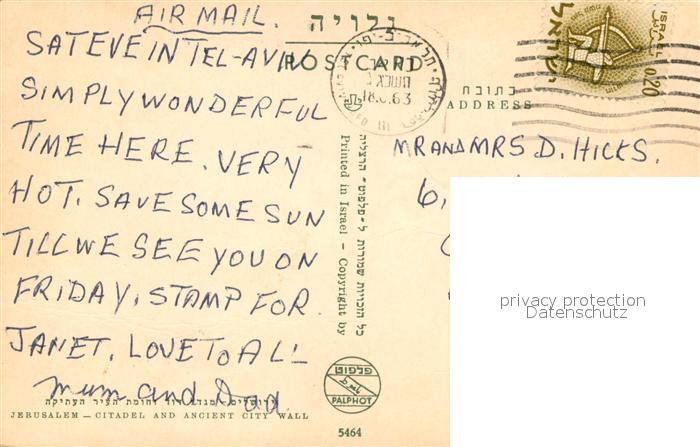 AIR MAIL.
SAT EVE IN TEL-AVIV
SIMPLY WONDERFUL
TIME HERE. VERY
HOT. SAVE SOME SUN
TILL WE SEE YOU ON
FRIDAY, STAMP FOR
JANET. LOVE TO ALL
Mum and Dad.
ירושלים – מגדל דוד וחומת העיר העתיקה
JERUSALEM — CITADEL AND ANCIENT CITY WALL
גלויה
POSTCARD
כל הזכויות שמורות ל־פלפוט־ הרצליה
Printed in Israel – Copyright by
פלפוט
PALPHOT
5464
תל אביב-יפו
18. 63
ISRAEL
ישראל
0.20
כתובת
ADDRESS
MR AND MRS D. HICKS.
6,
privacy protection
Datenschutz